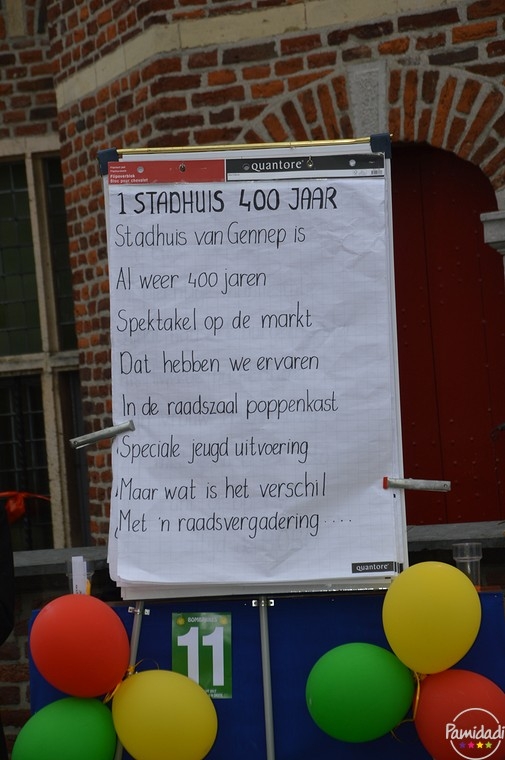 quantore
1 STADHUIS 400 JAAR
Stadhuis van Gennep is
Al weer 400 jaren
Spektakel op de markt
Dat hebben we ervaren
In de raadszaal poppenkast
Speciale jeugd uitvoering
Maar wat is het verschil
Met 'n raadsvergadering....
quantore
11
Pamidadi